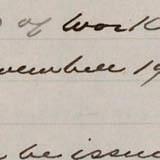 of work
vember 19
be issu